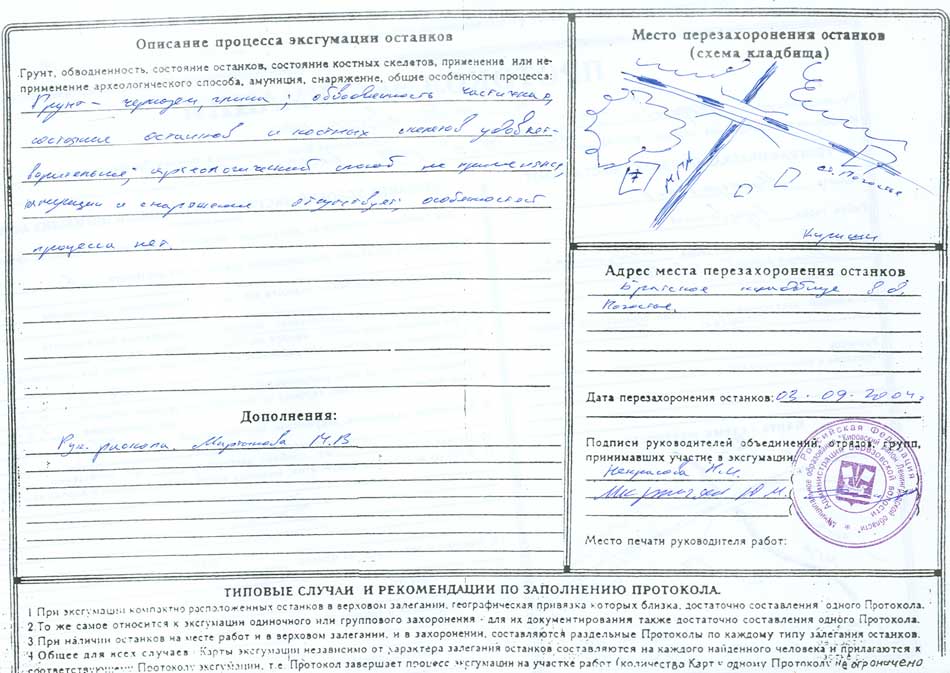 Описание процесса эксгумации останков
Грунт, обводненность, состояние останков, состояние костных скелетов, применение или не-
применение археологического способа, амуниция, снаряжение, общие особенности процесса:
Грунт – чернозем, глина; обводненность частичная,
состояние останков и костных скелетов удовлет-
ворительное; археологический способ не применялся,
амуниции и снаряжения отсутствует, особенностей
процесса нет.
Дополнения:
Рук. раскопа М.В
Место перезахоронения останков
(схема кладбища)
7
ст. Погостье
Кириши
Адрес места перезахоронения останков
Братское кладбище в д.
Погостье.
Дата перезахоронения останков: 03.09.2004г
Подписи руководителей объединений, отрядов, групп,
принимавших участие в эксгумации:
Некрасова Н.И.
Место печати руководителя работ:
Российская Федерация
Администрация Березовской волости
Муниципальное образование "Кировский район Ленинградской области"
ТИПОВЫЕ СЛУЧАИ И РЕКОМЕНДАЦИИ ПО ЗАПОЛНЕНИЮ ПРОТОКОЛА.
1 При эксгумации компактно расположенных останков в верховом залегании, географическая привязка которых близка, достаточно составления одного Протокола.
2. То же самое относится к эксгумации одиночного или группового захоронения - для их документирования также достаточно составления одного Протокола.
3 При наличии останков на месте работ и в верховом залегании, и в захоронении, составляются раздельные Протоколы по каждому типу залегания останков.
4 Общее для всех случаев Карты эксгумации независимо от характера залегания останков составляются на каждого найденного человека и прилагаются к
соответствующему Протоколу эксгумации, т.е. Протокол завершает процесс эксгумации на участке работ (количество Карт к одному Протоколу не ограничено